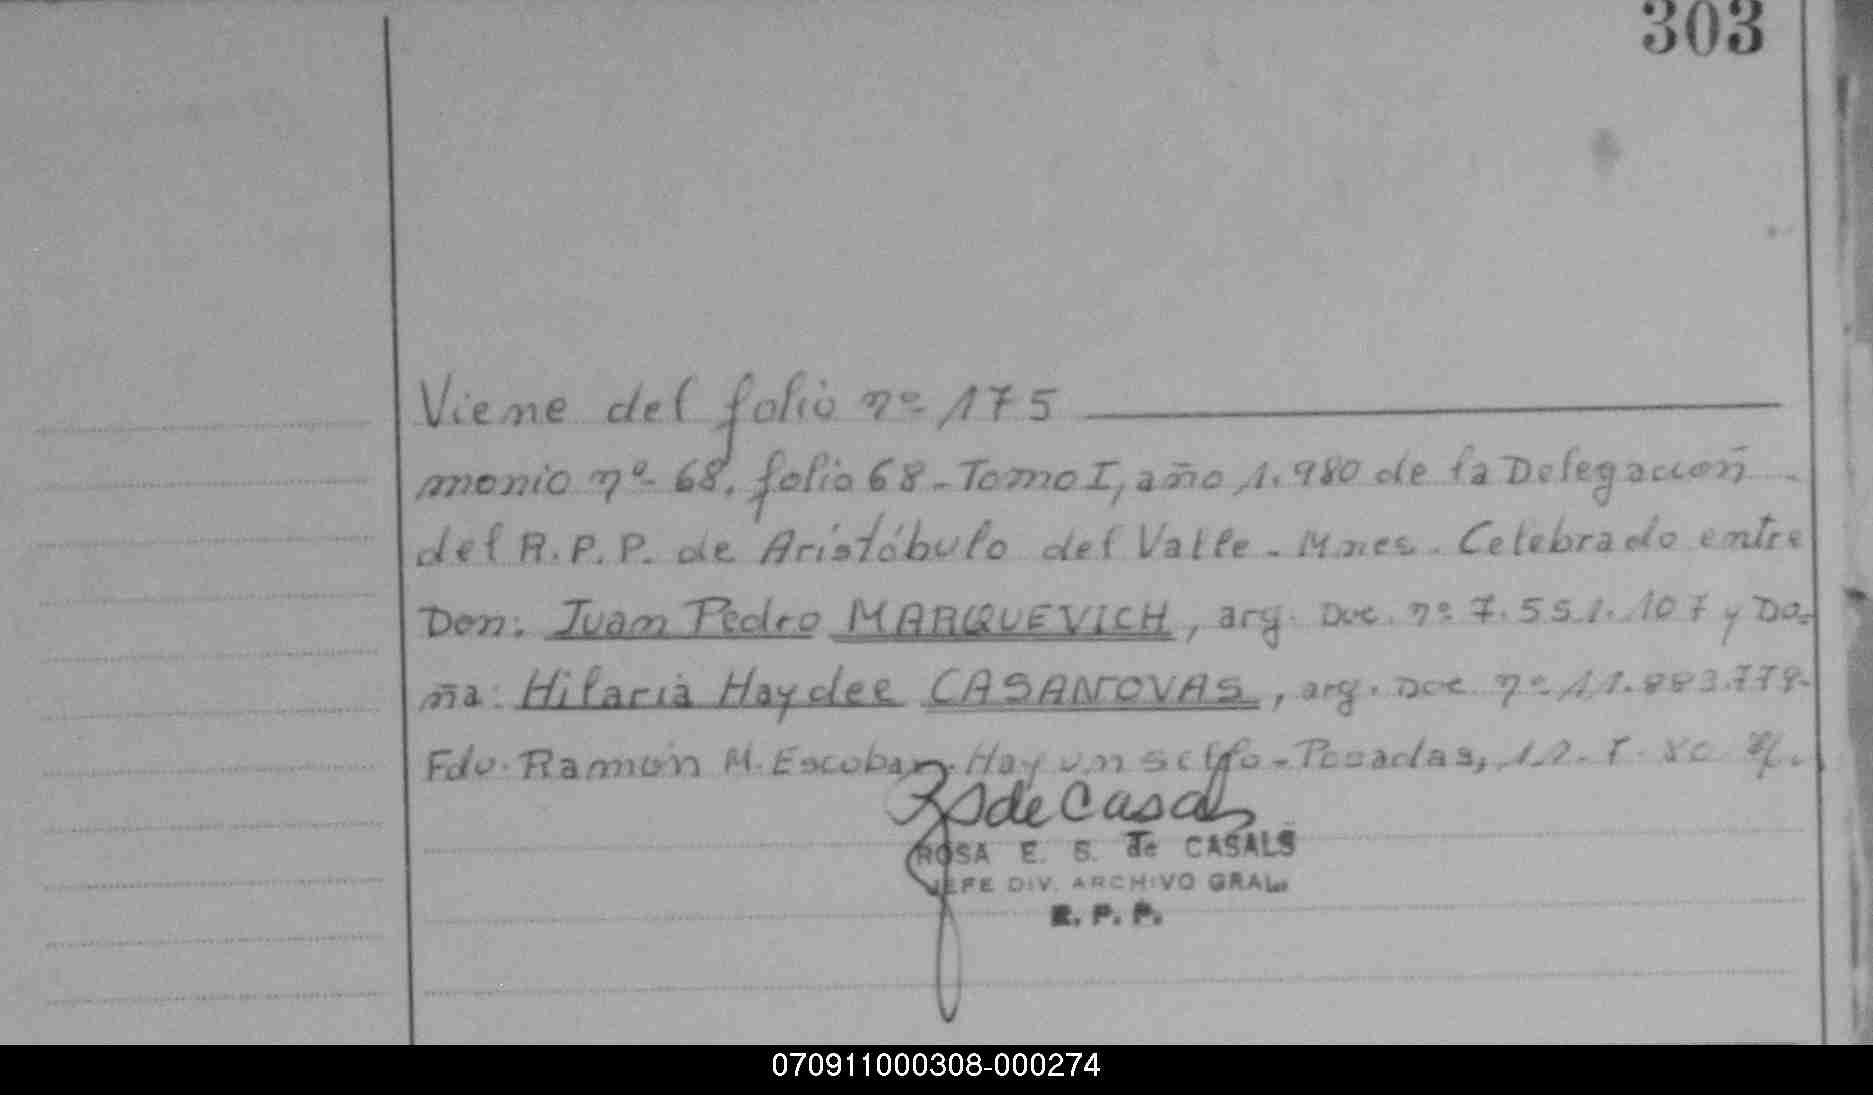 303
Viene del folio nº 175
monio nº 68, folio 68 - Tomo I, año 1.980 de la Delegación
del R.P.P. de Aristóbulo del Valle - Mnes. Celebrado entre
Don: Juan Pedro MARQUEVICH, arg. Doc. nº 7.551.107 y Do-
ña: Hilaria Haydee CASANOVAS, arg. Doc nº 11.883.778-
Fdo. Ramón M. Escobar. Hay un sello - Posadas, 12.
de Casals
ROSA E. S. de CASALS
JEFE DIV. ARCHIVO GRAL.
R. P. P.
070911000308-000274